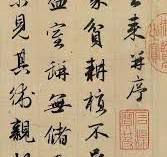 来并序
家貧耕植不
盈室缾無儲
未見其術親